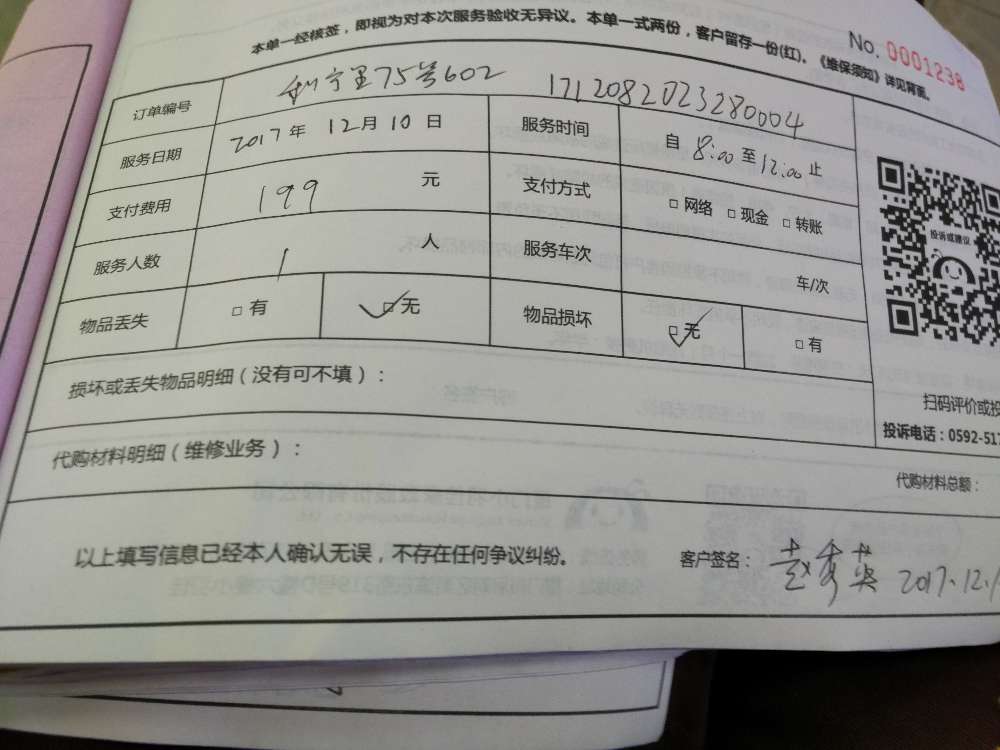 本单一经核签，即视为对本次服务验收无异议。本单一式两份，客户留存一份(红)。《维保须知》详见背面。
No. 0001238
订单编号 利宁里75号602 1712082023280004
服务日期 2017年 12月 10日 服务时间 自 8:00 至 12:00 止
支付费用 199 元 支付方式 □ 网络 □ 现金 □ 转账
服务人数 1 人 服务车次 车/次
物品丢失 □ 有 ☑ 无 物品损坏 ☑ 无 □ 有
损坏或丢失物品明细（没有可不填）：
投诉或建议
扫码评价或投
投诉电话：0592-517
代购材料明细（维修业务）：
代购材料总额：
以上填写信息已经本人确认无误，不存在任何争议纠纷。
客户签名：赵秀英 2017.12.1